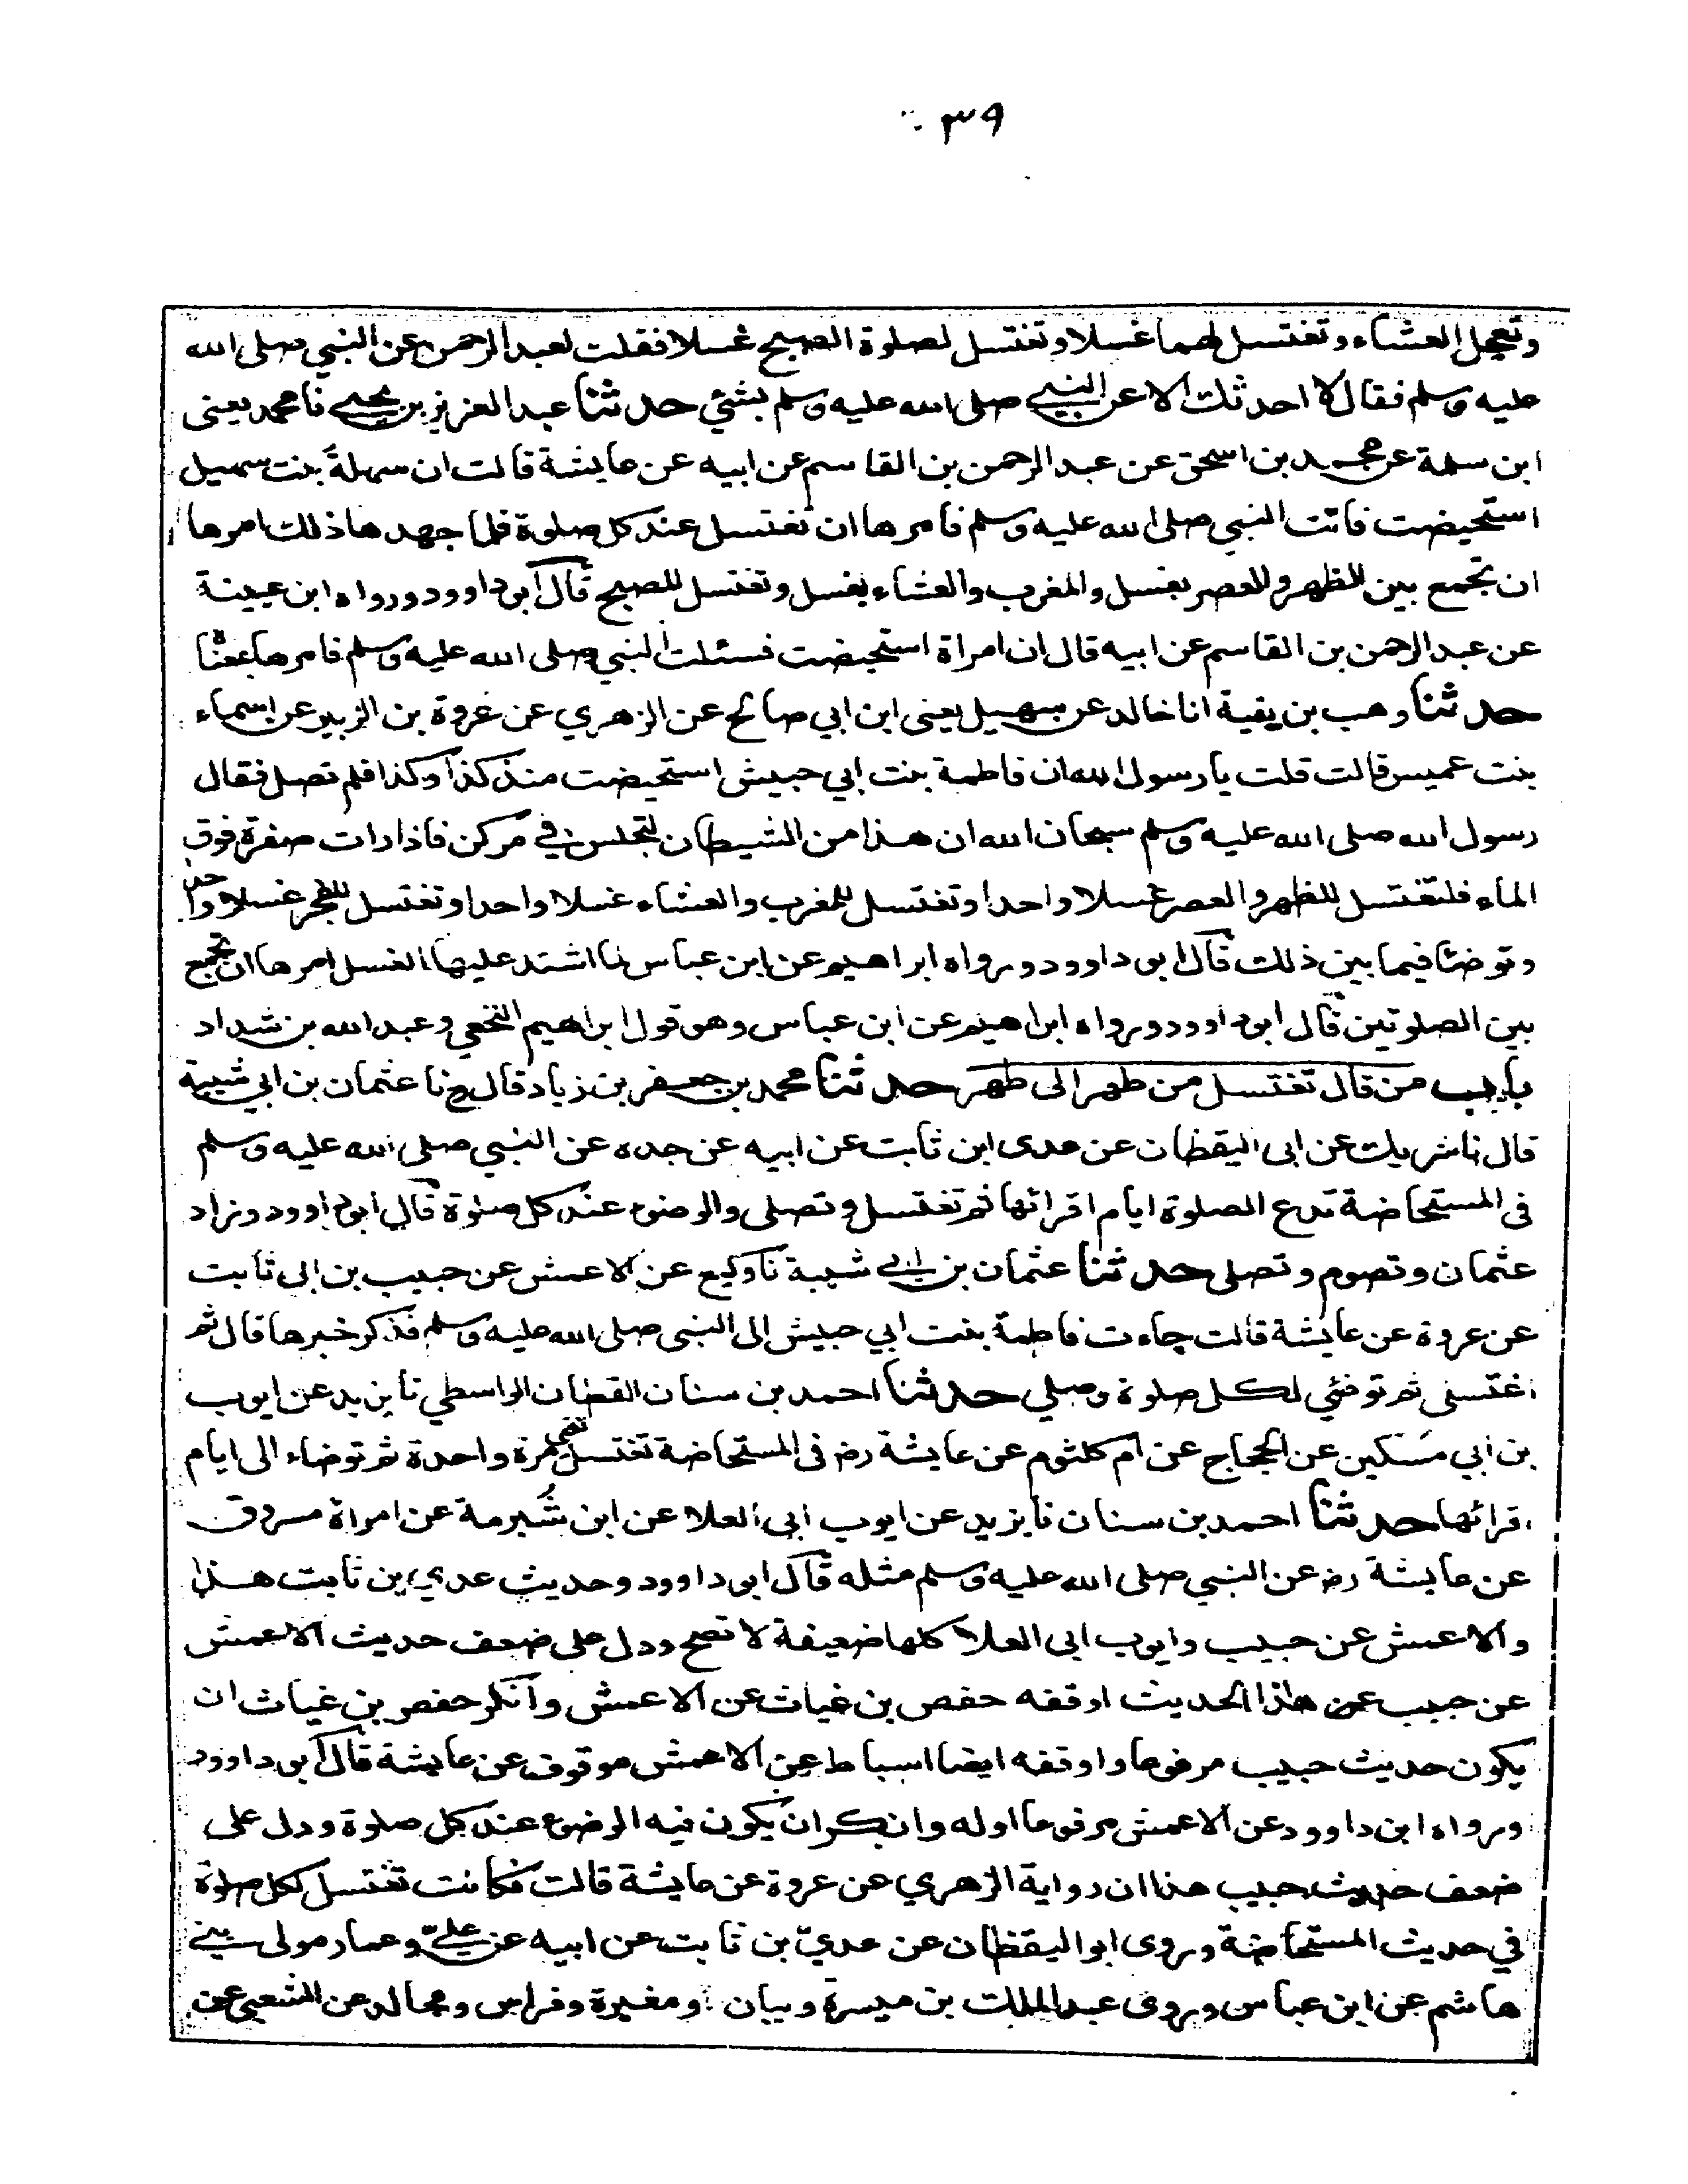 ٣٩
وتعجل العشاء وتغتسل لهما غسلا وتغتسل لصلوة الصبح غسلا فقلت لعبد الرحمن عن النبي صلى الله
عليه وسلم فقال لا احدثك الا عن النبي صلى الله عليه وسلم بشئي حدثنا عبد العزيز بن يحيى نا محمد يعنى
ابن سلمة عن محمد بن اسحق عن عبد الرحمن بن القاسم عن ابيه عن عايشة قالت ان سهلة بنت سهيل
استحيضت فاتت النبي صلى الله عليه وسلم فامرها ان تغتسل عند كل صلوة فلما جهدها ذلك امرها
ان تجمع بين الظهر والعصر بغسل والمغرب والعشاء بغسل وتغتسل للصبح قال ابو داوود ورواه ابن عيينة
عن عبد الرحمن بن القاسم عن ابيه قال ان امراة استحيضت فسئلت النبي صلى الله عليه وسلم فامرها بمعناه
حدثنا وهب بن بقية انا خالد عن سهيل يعنى ابن ابي صالح عن الزهري عن عروة بن الزبير عن اسماء
بنت عميس قالت قلت يا رسول الله ان فاطمة بنت ابي حبيش استحيضت منذ كذا وكذا فلم تصل فقال
رسول الله صلى الله عليه وسلم سبحان الله ان هذا من الشيطان لتجلس في مركن فاذا رات صفرة فوق
الماء فلتغتسل للظهر والعصر غسلا واحدا وتغتسل للمغرب والعشاء غسلا واحدا وتغتسل للفجر غسلا واحدا
وتوضئا فيما بين ذلك قال ابو داوود ورواه ابراهيم عن ابن عباس لما اشتد عليها الغسل امرها ان تجمع
بين الصلوتين قال ابو داوود ورواه ابراهيم عن ابن عباس وهو قول ابراهيم النخعي وعبد الله بن شداد
باب من قال تغتسل من طهر الى طهر حدثنا محمد بن جعفر بن زياد قال ح نا عثمان بن ابي شيبة
قال نا شريك عن ابى اليقظان عن عدى ابن ثابت عن ابيه عن جده عن النبي صلى الله عليه وسلم
فى المستحاضة تدع الصلوة ايام اقرائها ثم تغتسل وتصلى والوضوء عند كل صلوة قال ابو داوود وزاد
عثمان وتصوم وتصلى حدثنا عثمان بن ابي شيبة نا وكيع عن الاعمش عن حبيب بن ابى ثابت
عن عروة عن عايشة قالت جاءت فاطمة بنت ابي حبيش الى النبى صلى الله عليه وسلم فذكر خبرها قال ثم
اغتسلى ثم توضئي لكل صلوة وصلي حدثنا احمد بن سنان القطان الواسطي نا يزيد عن ايوب
بن ابي مسكين عن الحجاج عن ام كلثوم عن عايشة رض فى المستحاضة تغتسل تعنى مرة واحدة ثم توضاء الى ايام
اقرائها حدثنا احمد بن سنان نا يزيد عن ايوب ابى العلا عن ابن شُبرمة عن امراة مسروق
عن عايشة رض عن النبي صلى الله عليه وسلم مثله قال ابو داوود وحديث عدي بن ثابت هذا
والاعمش عن حبيب وايوب ابى العلا كلها ضعيفة لا تصح ودل على ضعف حديث الاعمش
عن حبيب عن هذا الحديث اوقفه حفص بن غياث عن الاعمش وانكر حفص بن غياث ان
يكون حديث حبيب مرفوعا واوقفه ايضا اسباط عن الاعمش موقوف عن عايشة قال ابو داوود
ورواه ابن داوود عن الاعمش مرفوعا اوله وانكر ان يكون فيه الوضوء عند كل صلوة ودل على
ضعف حديث حبيب هذا ان رواية الزهري عن عروة عن عايشة قالت فكانت تغتسل لكل صلوة
في حديث المستحاضة وروى ابو اليقظان عن عديّ بن ثابت عن ابيه عن عليّ وعمار مولى بني
هاشم عن ابن عباس وروى عبد الملك بن ميسرة وبيان ومغيرة وفراس ومجالد عن الشعبي عن